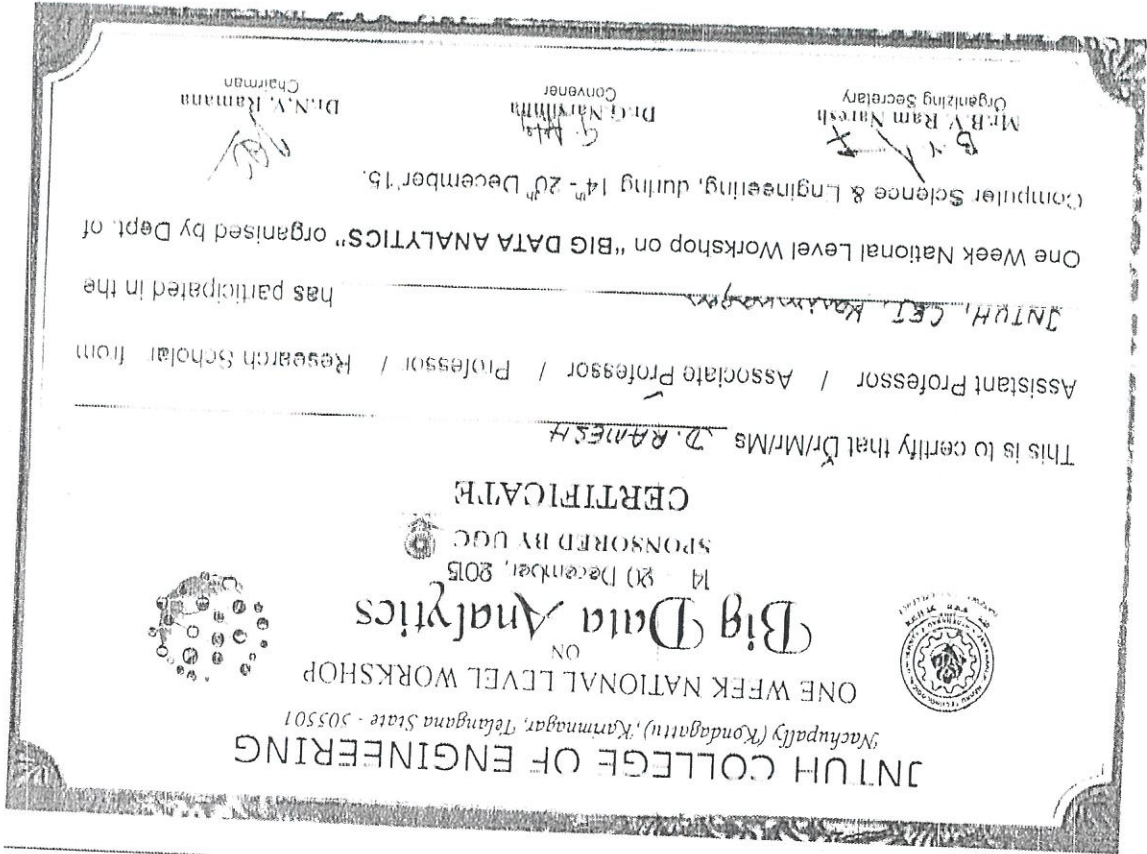 JNTUH COLLEGE OF ENGINEERING
Nachupally (Kondagattu), Karimnagar, Telangana State - 505501
ONE WEEK NATIONAL LEVEL WORKSHOP
ON
Big Data Analytics
14 - 20 December, 2015
SPONSORED BY UGC
CERTIFICATE
This is to certify that Dr/Mr/Ms D. RAMESH
Assistant Professor / Associate Professor / Professor / Research Scholar from
JNTUH, CEJ, Karimnagar has participated in the
One Week National Level Workshop on "BIG DATA ANALYTICS" organised by Dept. of
Computer Science & Engineering, during 14th - 20th December'15.
Mr.B.V. Ram Naresh Dr.G.Narsimha Dr.N.V. Ramana
Organizing Secretary Convener Chairman